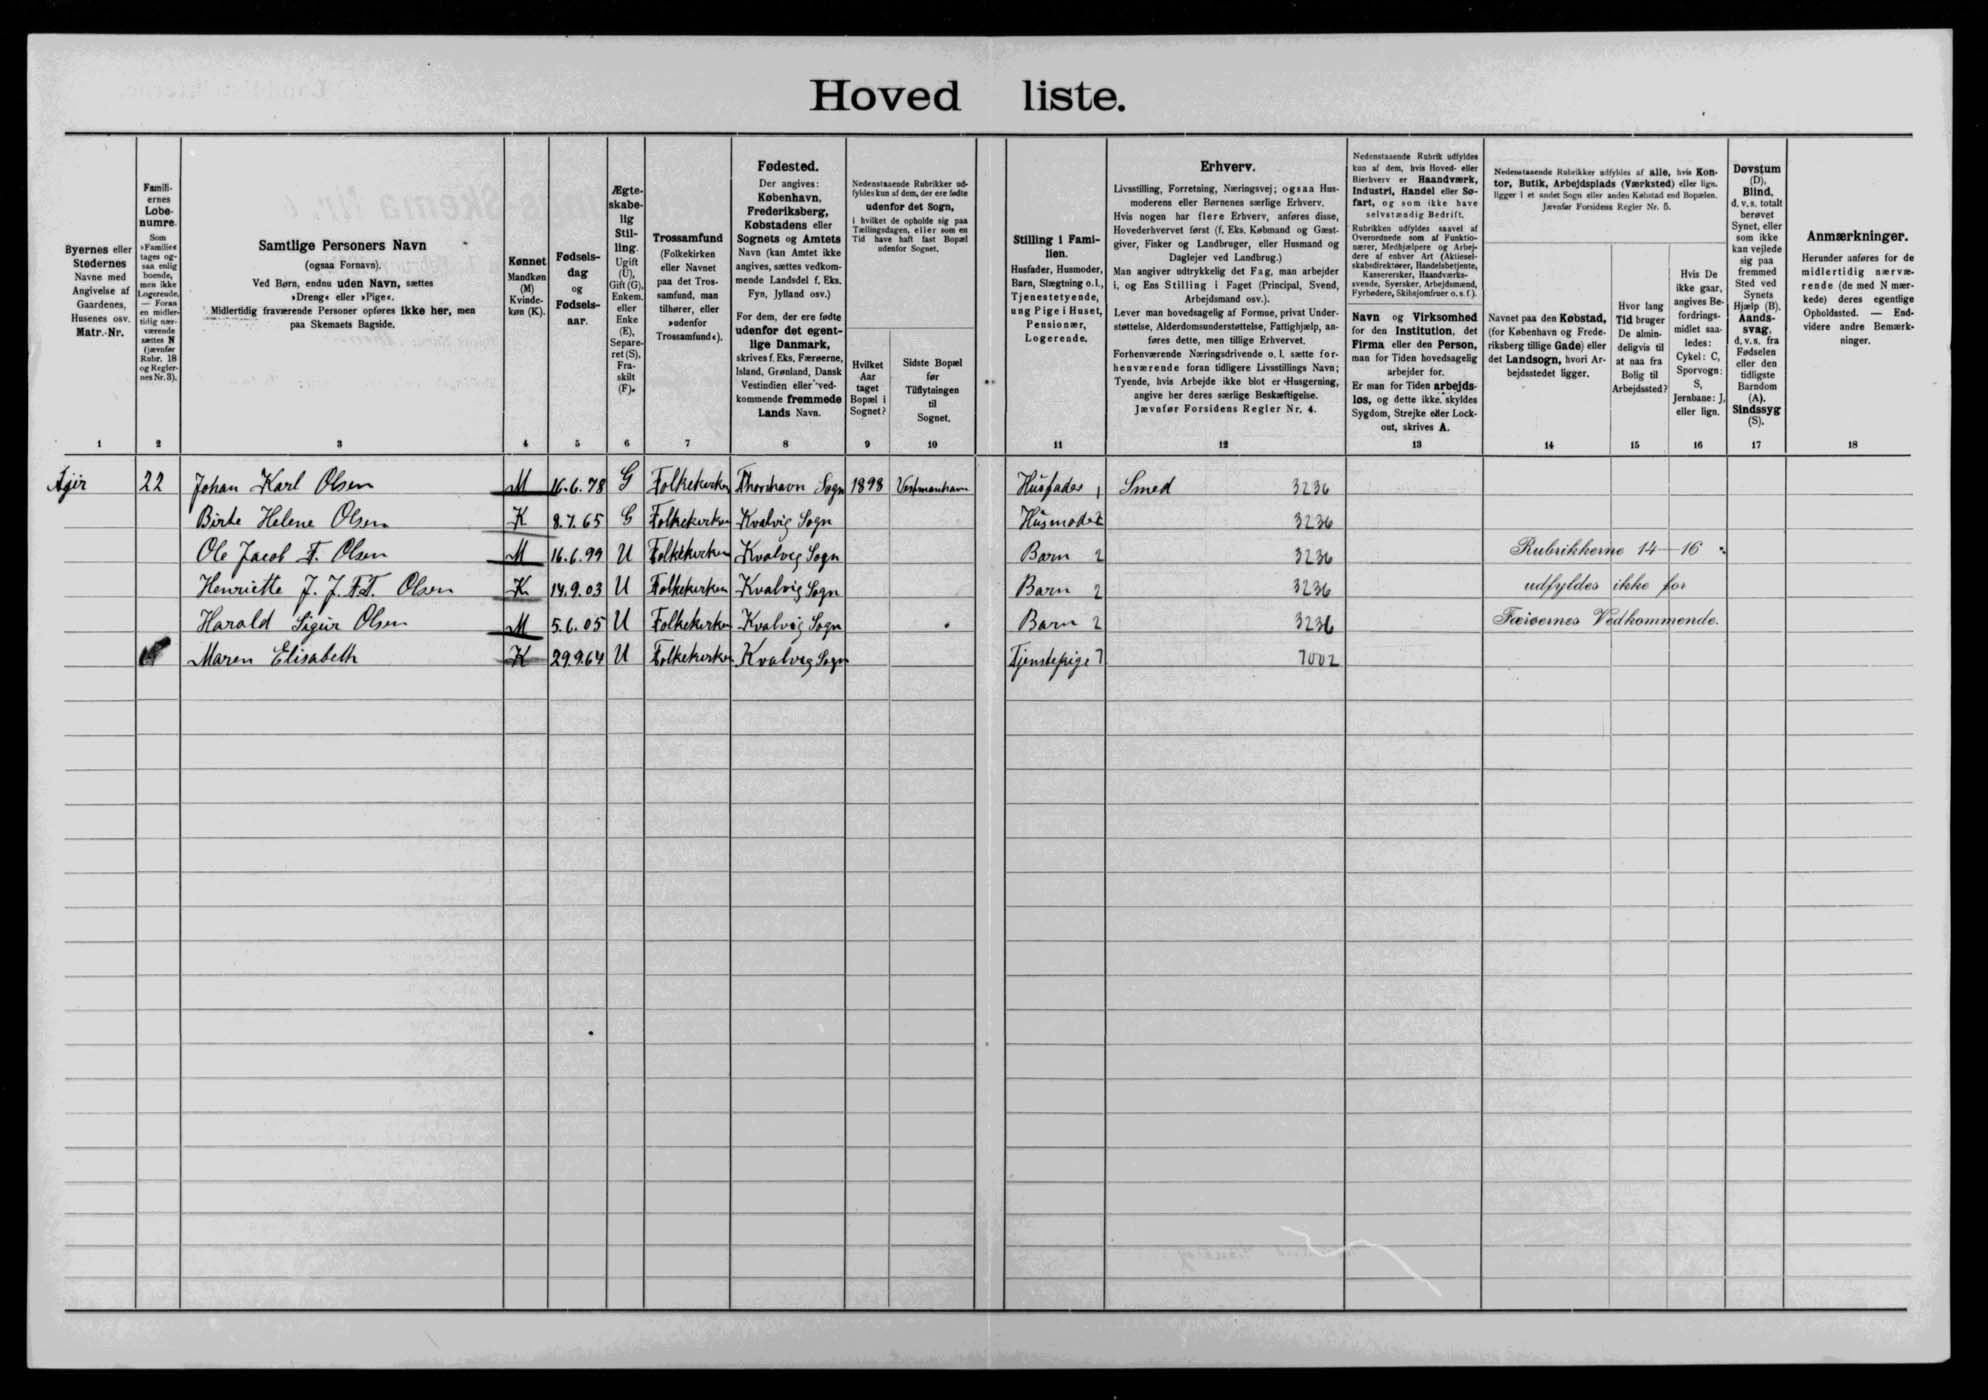 Hoved liste.
Byernes eller
Stedernes
Navne med
Angivelse af
Gaardenes,
Husenes osv.
Matr.-Nr.
1
Famili-
ernes
Løbe-
numre.
Som
»Familie«
tages og-
saa enlig
boende,
men ikke
Logerende.
— Foran
en midler-
tidig nær-
værende
sættes N
(jævnfør
Rubr. 18
og Regler-
nes Nr. 3).
2
Samtlige Personers Navn
(ogsaa Fornavn).
Ved Børn, endnu uden Navn, sættes
»Dreng« eller »Pige«.
Midlertidig fraværende Personer opføres ikke her, men
paa Skemaets Bagside.
3
Kønnet
Mandkøn
(M)
Kvinde-
køn (K).
4
Fødsels-
dag
og
Fødsels-
aar.
5
Ægte-
skabe-
lig
Stil-
ling.
Ugift
(U),
Gift (G),
Enkem.
eller
Enke
(E),
Separe-
ret (S),
Fra-
skilt
(F).
6
Trossamfund
(Folkekirken
eller Navnet
paa det Tros-
samfund, man
tilhører, eller
»udenfor
Trossamfund«).
7
Fødested.
Der angives:
København,
Frederiksberg,
Købstadens eller
Sognets og Amtets
Navn (kan Amtet ikke
angives, sættes vedkom-
mende Landsdel f. Eks.
Fyn, Jylland osv.)
For dem, der ere fødte
udenfor det egent-
lige Danmark,
skrives f. Eks. Færøerne,
Island, Grønland, Dansk
Vestindien eller ved-
kommende fremmede
Lands Navn.
8
Nedenstaaende Rubrikker ud-
fyldes kun af dem, der ere fødte
udenfor det Sogn,
i hvilket de opholde sig paa
Tællingsdagen, eller som en
Tid have haft fast Bopæl
udenfor Sognet.
Hvilket
Aar
taget
Bopæl i
Sognet?
9
Sidste Bopæl
før
Tilflytningen
til
Sognet.
10
Stilling i Fami-
lien.
Husfader, Husmoder,
Barn, Slægtning o.l.,
Tjenestetyende,
ung Pige i Huset,
Pensionær,
Logerende.
11
Erhverv.
Livsstilling, Forretning, Næringsvej; ogsaa Hus-
moderens eller Børnenes særlige Erhverv.
Hvis nogen har flere Erhverv, anføres disse,
Hovederhvervet først (f. Eks. Købmand og Gæst-
giver, Fisker og Landbruger, eller Husmand og
Daglejer ved Landbrug.)
Man angiver udtrykkelig det Fag, man arbejder
i, og Ens Stilling i Faget (Principal, Svend,
Arbejdsmand osv.).
Lever man hovedsagelig af Formue, privat Under-
støttelse, Alderdomsunderstøttelse, Fattighjælp, an-
føres dette, men tillige Erhvervet.
Forhenværende Næringsdrivende o. l. sætte for-
henværende foran tidligere Livsstillings Navn;
Tyende, hvis Arbejde ikke blot er Husgerning,
angive her deres særlige Beskæftigelse.
Jævnfør Forsidens Regler Nr. 4.
12
Nedenstaaende Rubrik udfyldes
kun af dem, hvis Hoved- eller
Bierhverv er Haandværk,
Industri, Handel eller Sø-
fart, og som ikke have
selvstændig Bedrift.
Rubrikken udfyldes saavel af
Overordnede som af Funktio-
nærer, Medhjælpere og Arbej-
dere af enhver Art (Aktiesel-
skabsdirektører, Handelsbetjente,
Kasserersker, Haandværks-
svende, Syersker, Arbejdsmænd,
Fyrbødere, Skibsjomfruer o. s. f.).
Navn og Virksomhed
for den Institution, det
Firma eller den Person,
man for Tiden hovedsagelig
arbejder for.
Er man for Tiden arbejds-
løs, og dette ikke skyldes
Sygdom, Strejke eller Lock-
out, skrives A.
13
Nedenstaaende Rubrikker udfyldes af alle, hvis Kon-
tor, Butik, Arbejdsplads (Værksted) eller lign.
ligger i et andet Sogn eller anden Købstad end Bopælen.
Jævnfør Forsidens Regler Nr. 5.
Navnet paa den Købstad,
(for København og Frede-
riksberg tillige Gade) eller
det Landsogn, hvori Ar-
bejdsstedet ligger.
14
Hvor lang
Tid bruger
De almin-
deligvis til
at naa fra
Bolig til
Arbejdssted?
15
Hvis De
ikke gaar,
angives Be-
fordrings-
midlet saa-
ledes:
Cykel: C,
Sporvogn:
S,
Jernbane: J,
eller lign.
16
Døvstum
(D),
Blind,
d. v. s. totalt
berøvet
Synet, eller
som ikke
kan vejlede
sig paa
fremmed
Sted ved
Synets
Hjælp (B).
Aands-
svag,
d. v. s. fra
Fødselen
eller den
tidligste
Barndom
(A).
Sindssyg
(S).
17
Anmærkninger.
Herunder anføres for de
midlertidig nærvæ-
rende (de med N mær-
kede) deres egentlige
Opholdssted. — End-
videre andre Bemærk-
ninger.
18
22 Johan Karl Olsen M 16.6.78 G Folkekirken Thorshavn Sogn 1898 Vestmanhavn Husfader 1 Smed 3236
Birte Helene Olsen K 8.7.65 G Folkekirken Kvalvig Sogn Husmoder 2 3236
Ole Jacob F. Olsen M 16.6.99 U Folkekirken Kvalvig Sogn Barn 2 3236 Rubrikkerne 14—16
Henriette J. J. F.T. Olsen K 14.9.03 U Folkekirken Kvalvig Sogn Barn 2 3236 udfyldes ikke for
Harald Sigur Olsen M 5.6.05 U Folkekirken Kvalvig Sogn Barn 2 3236 Færøernes Vedkommende.
Maren Elisabeth K 29.9.64 U Folkekirken Kvalvig Sogn Tjenstepige 7 7002